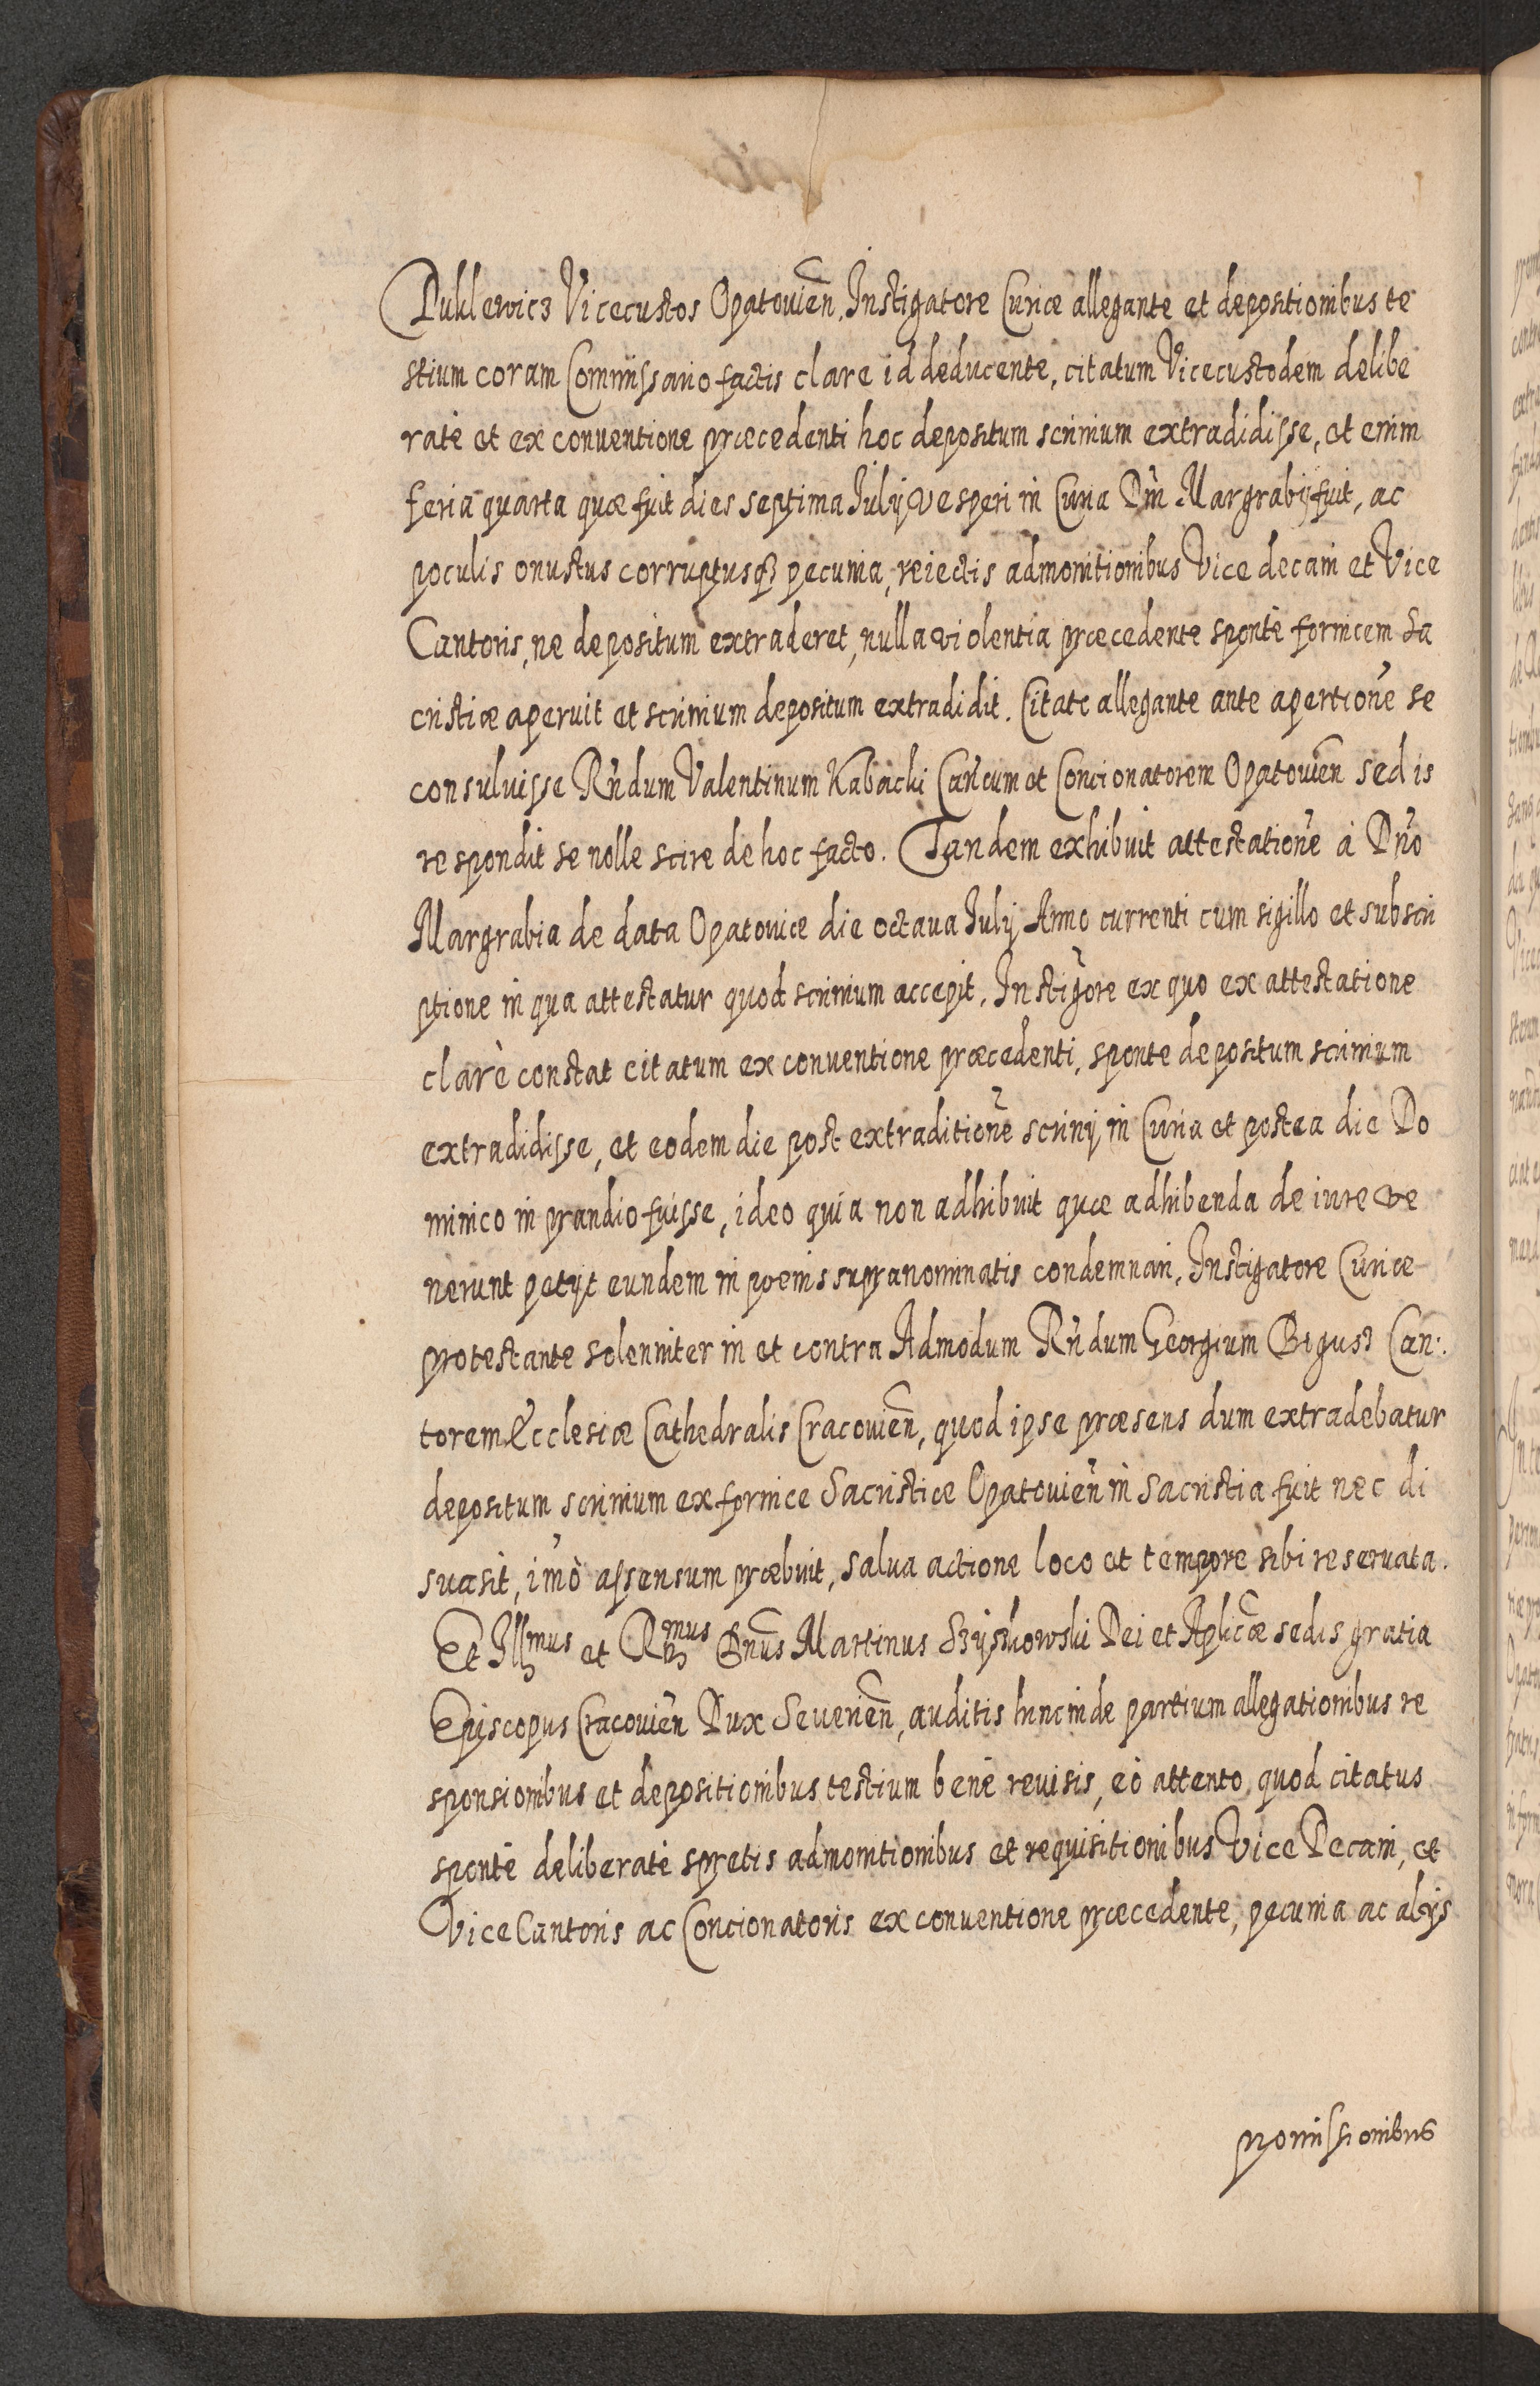 Duklewicz Vicecustos Opatouien̄. Instigatore Curiæ allegante et depositionibus te
stium coram Commissario factis clare id deducente, citatum Vicecustodem delibe
ratè et ex conuentione præcedenti hoc depositum scrinium extradidisse, et enim
feria quarta quæ fuit dies septima Iulij vesperi in Curia Dn̄i Margrabij fuit, ac
poculis onustus corruptusq3 pecunia, reiectis admonitionibus Vice decani et Vice
Cantoris, ne depositum extraderet, nulla violentia præcedente spontè fornicem Sa
cristiæ aperuit et scrinium depositum extradidit. Citato allegante ante apertionē se
consuluisse Rn̄dum Valentinum Kabacki Can̄cum et Concionatorem Opatouien̄ sed is
respondit se nolle scire de hoc facto. Tandem exhibuit attestationē à Dn̄o
Margrabia de data Opatouiæ die octaua Iulij Anno currenti cum sigillo et subscri
ptione in qua attestatur quod scrinium accepit. Instigōre ex quo ex attestatione
clarè constat citatum ex conuentione præcedenti, sponte depositum scrinium
extradidisse, et eodem die post extraditionē scrinij in Curia et postea die Do
minico in prandio fuisse, ideo quia non adhibuit quæ adhibenda de iure ve
nerunt petijt eundem in poenis supranominatis condemnari. Instigatore Curiæ
protestante solenniter in et contra Admodum Rn̄dum Georgium Bogusz Can:
torem Ecclesiæ Cathedralis Cracouien̄, quod ipse præsens dum extradebatur
depositum scrinium ex fornice Sacristiæ Opatouien̄ in Sacristia fuit nec di
suasit, imò assensum præbuit, salua actione loco et tempore sibi reseruata.
Et Illmus et Rmus Dn̄us Martinus Szyszkowski Dei et Aplicæ sedis gratia
Episcopus Cracouien̄ Dux Seuerien̄, auditis hincinde partium allegationibus re
sponsionibus et depositionibus testium benè reuisis, eò attento quod citatus
spontè deliberatè spretis admonitionibus et requisitionibus Vice Decani, et
Vice Cantoris ac Concionatoris ex conuentione præcedente, pecunia ac alijs
promissionibus